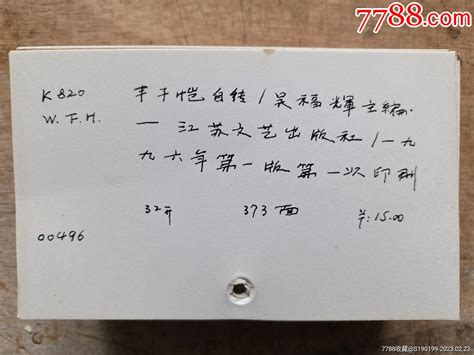 7788.com
K820
W.F.H.
丰子恺自传/吴福輝主编.
—江苏文艺出版社/一九
九六年第一版第一次印刷
32开 373面 羊:15.00
00496
7788收藏@S190199-2023.02.23